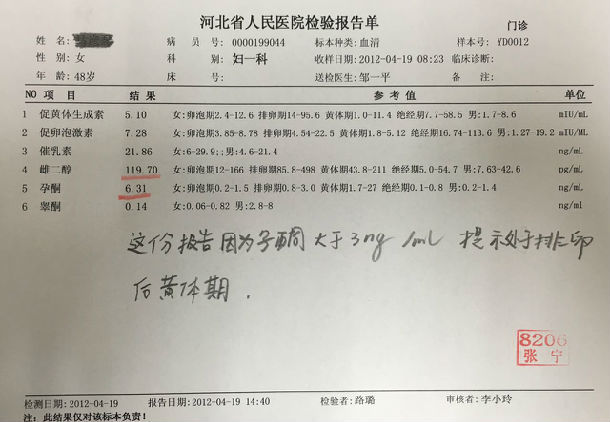 河北省人民医院检验报告单
门诊
姓 名:
病 员 号: 0000199044
标本种类:血清
样本号: YD0012
性 别:女
科 别:妇一科
收样日期:2012-04-19 08:23
临床诊断:
年 龄:48岁
床 号:
送检医生:邹一平
备 注:
NO 项 目 结 果 参 考 值 单位
1 促黄体生成素 5.10 女:卵泡期2.4-12.6 排卵期14-95.6 黄体期1.0-11.4 绝经期7.7-58.5 男:1.7-8.6 mIU/mL
2 促卵泡激素 7.28 女:卵泡期3.85-8.78 排卵期4.54-22.5 黄体期1.8-5.12 绝经期16.74-113.6 男:1.27-19.2 mIU/mL
3 催乳素 21.86 女:6-29.9;男:4.6-21.4 ng/mL
4 雌二醇 119.70 女:卵泡期12-166 排卵期85.8-498 黄体期43.8-211 绝经期5.0-54.7 男:7.63-42.6 pg/mL
5 孕酮 6.31 女:卵泡期0.2-1.5 排卵期0.8-3.0 黄体期1.7-27 绝经期0.1-0.8 男:0.2-1.4 ng/mL
6 睾酮 0.14 女:0.06-0.82 男:2.8-8 ng/ml
这份报告因为孕酮大于3ng/mL 提示处于排卵
后黄体期.
8206
张宁
检测日期:2012-04-19
报告日期:2012-04-19 14:40
检验者:路璐
审核者:李小玲
注: 此结果仅对该标本负责!